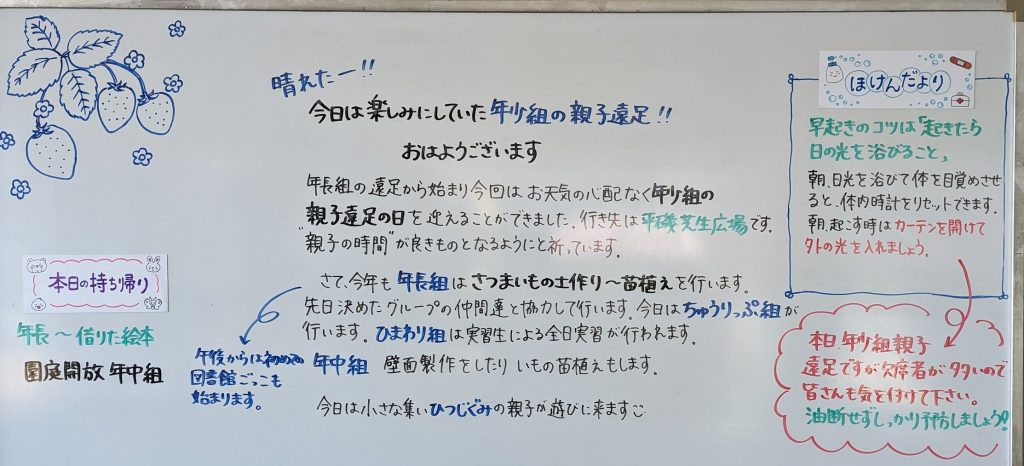 晴れたー!!
今日は楽しみにしていた年少組の親子遠足!!
おはようございます
年長組の遠足から始まり今回は、お天気の心配なく年少組の
親子遠足の日を迎えることができました。行き先は平磯芝生広場です。
"親子の時間"が良きものとなるようにと祈っています。
さて、今年も年長組はさつまいもの土作り～苗植えを行います。
先日決めたグループの仲間達と協力して行います。今日はちゅうりっぷ組が
行います。ひまわり組は実習生による全日実習が行われます。
年中組 壁面製作をしたり いもの苗植えもします。
今日は小さな集いひつじぐみの親子が遊びに来ます
午後からは初めての
図書館ごっこも
始まります。
本日の持ち帰り
年長～借りた絵本
園庭開放 年中組
ほけんだより
早起きのコツは「起きたら
日の光を浴びること」
朝、日光を浴びて体を目覚めさせ
ると、体内時計をリセットできます。
朝、起こす時はカーテンを開けて
外の光を入れましょう。
本日年少組親子
遠足ですが欠席者が多いので
皆さんも気を付けて下さい。
油断せずしっかり予防しましょう!!